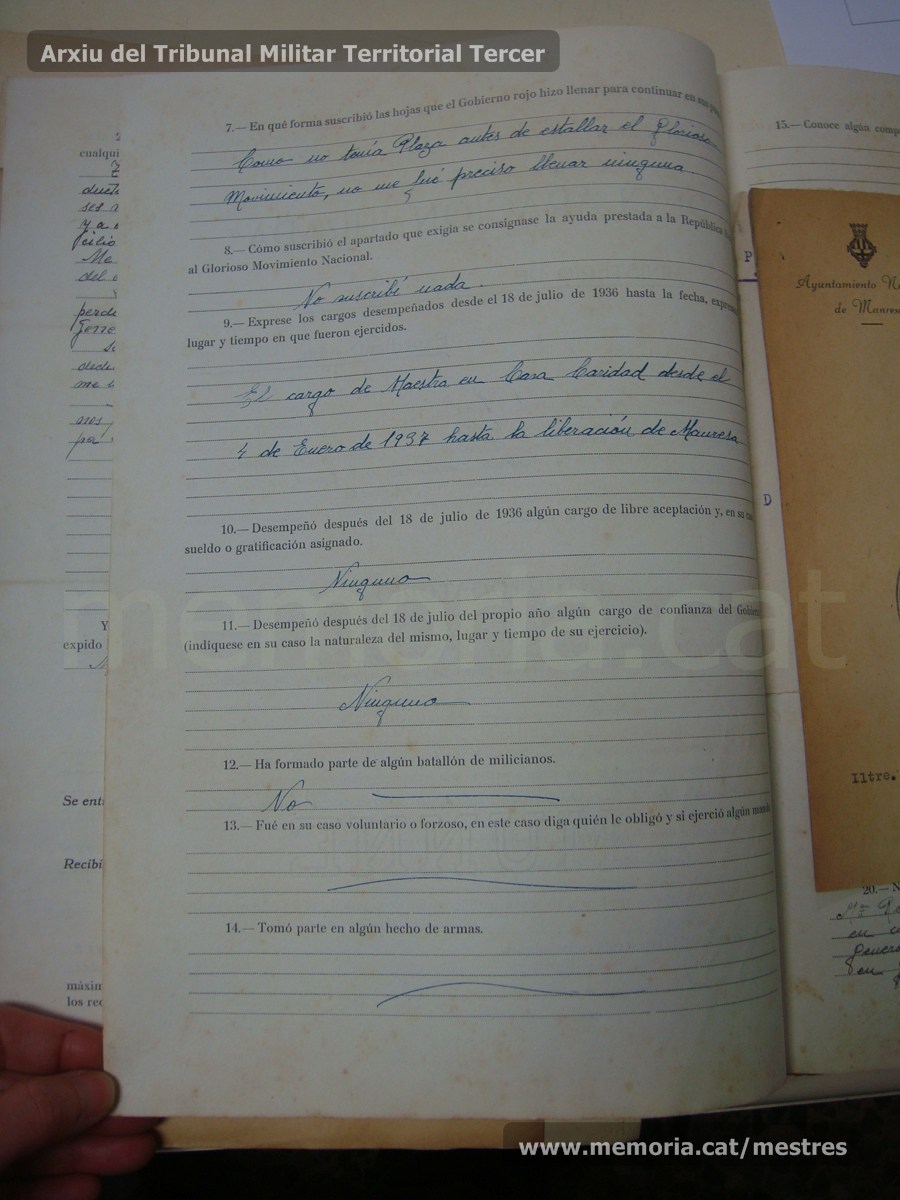 Arxiu del Tribunal Militar Territorial Tercer
7.— En qué forma suscribió las hojas que el Gobierno rojo hizo llenar para continuar en sus
Como no tenía Plaza antes de estallar el Glorioso
Movimiento, no me fué preciso llenar ninguna.
8.— Cómo suscribió el apartado que exigia se consignase la ayuda prestada a la República
al Glorioso Movimiento Nacional.
No suscribí nada.
9.— Exprese los cargos desempeñados desde el 18 de julio de 1936 hasta la fecha,
lugar y tiempo en que fueron ejercidos.
El cargo de Maestra en Casa Caridad desde el
4 de Enero de 1937 hasta la liberación de Manresa
10.— Desempeñó después del 18 de julio de 1936 algún cargo de libre aceptación y, en su
sueldo o gratificación asignado.
Ninguno
11.— Desempeñó después del 18 de julio del propio año algún cargo de confianza del
(indíquese en su caso la naturaleza del mismo, lugar y tiempo de su ejercicio).
Ninguno
12.— Ha formado parte de algún batallón de milicianos.
No
13.— Fué en su caso voluntario o forzoso, en este caso diga quién le obligó y si ejerció algún
14.— Tomó parte en algún hecho de armas.
cualqui
Y
expido
Se ent
Recibi
máxim
los rec
15.— Conoce algún
P.
Ayuntamiento
de
D
Iltre.
20.—
memoria.cat
www.memoria.cat/mestres